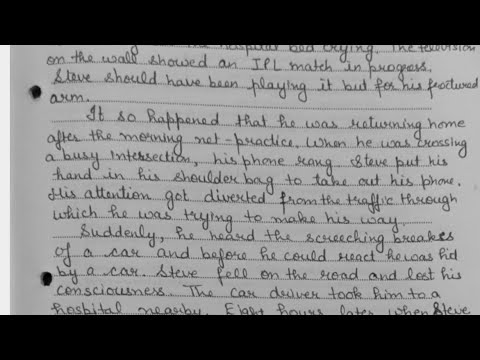 hospital bed crying. The television
on the wall showed an IPL match in progress.
Steve should have been playing it but for his fractured
arm.
It so happened that he was returning home
after the morning net-practice. When he was crossing
a busy Intersection, his phone rang. Steve put his
hand in his shoulder bag to take out his phone.
His attention got diverted from the traffic through
which he was trying to make his way
Suddenly, he heard the screeching breakes
of a car and before he could react he was hid
by a car. Steve fell on the road and lost his
consciousness. The car driver took him to a
hospital nearby. Eight hours later when Steve